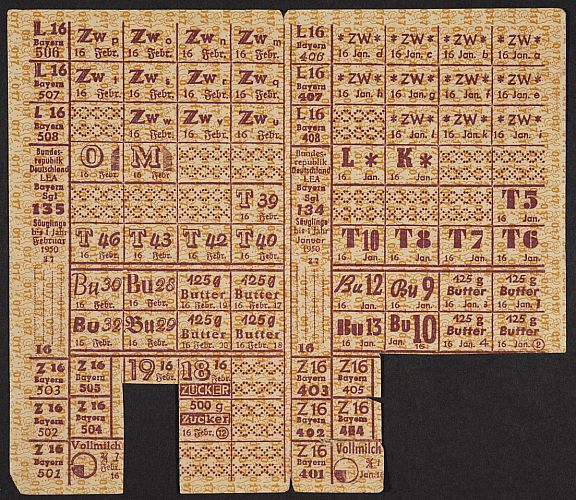 L 16 Bayern 506
Zw p 16 Febr.
Zw o 16 Febr.
Zw n 16 Febr.
Zw m 16 Febr.
L 16 Bayern 507
Zw t 16 Febr.
Zw s 16 Febr.
Zw r 16 Febr.
Zw q 16 Febr.
L 16 Bayern 508
Zw w 16 Febr.
Zw v 16 Febr.
Zw u 16 Febr.
Bundes-
republik
Deutschland
LEA
Bayern
Sgl
135
Säuglinge
bis 1 Jahr
Februar
1950
16
O 16 Febr.
M 16 Febr.
T 39 16 Febr.
T 46 16 Febr.
T 43 16 Febr.
T 42 16 Febr.
T 40 16 Febr.
Bu 30 16 Febr.
Bu 28 16 Febr.
125 g Butter 16 Febr. 19
125 g Butter 16 Febr. 17
Bu 32 16 Febr.
Bu 29 16 Febr.
125 g Butter 16 Febr. 20
125 g Butter 16 Febr. 18
Z 16 Bayern 503
Z 16 Bayern 505
19 16 Febr.
18 16 Febr.
ZUCKER
500 g
Zucker
16 Febr. 12
Z 16 Bayern 502
Z 16 Bayern 504
Z 16 Bayern 501
Vollmilch
Febr.
16
L 16 Bayern 406
*ZW* 16 Jan. d
*ZW* 16 Jan. c
*ZW* 16 Jan. b
*ZW* 16 Jan. a
L 16 Bayern 407
*ZW* 16 Jan. h
*ZW* 16 Jan. g
*ZW* 16 Jan. f
*ZW* 16 Jan. e
L 16 Bayern 408
*ZW* 16 Jan. l
*ZW* 16 Jan. k
*ZW* 16 Jan. i
Bundes-
republik
Deutschland
LEA
Bayern
Sgl
134
Säuglinge
bis 1 Jahr
Januar
1950
16
L * 16 Jan.
K * 16 Jan.
T 5 16 Jan.
T 10 16 Jan.
T 8 16 Jan.
T 7 16 Jan.
T 6 16 Jan.
Bu 12 16 Jan.
Bu 9 16 Jan.
125 g Butter 16 Jan. 3
125 g Butter 16 Jan. 1
Bu 13 16 Jan.
Bu 10 Jan. 16
125 g Butter 16 Jan. 4
125 g Butter 16 Jan. 2
Z 16 Bayern 403
Z 16 Bayern 405
Z 16 Bayern 402
Z 16 Bayern 404
Z 16 Bayern 401
Vollmilch
Jan. 16